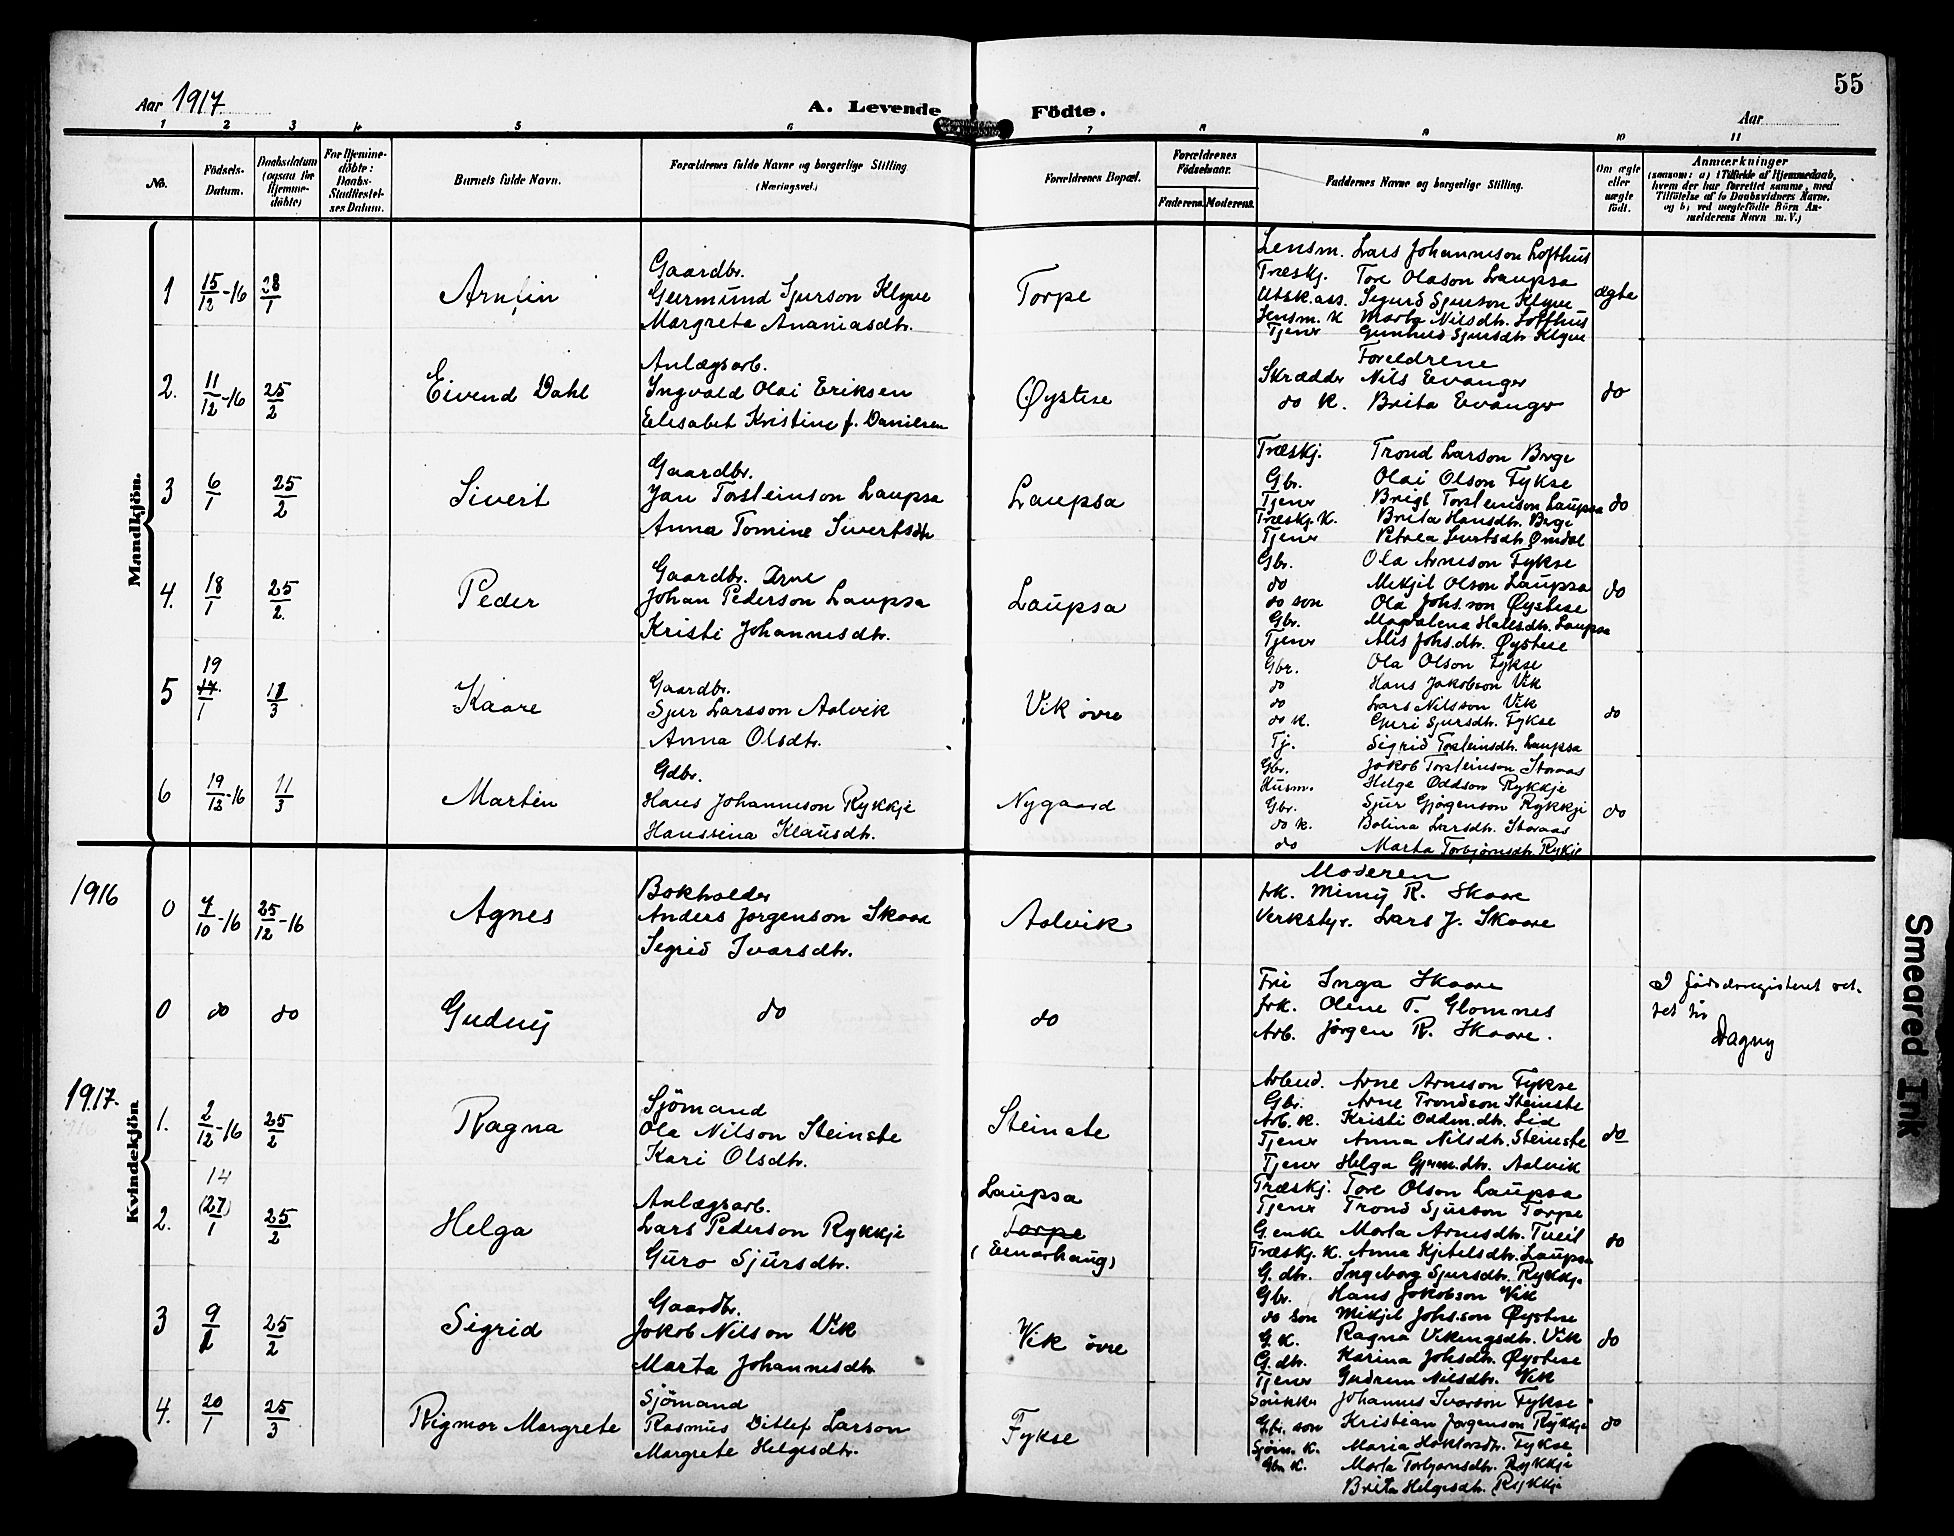 55
Aar 1917
A. Levende Födte.
Aar
1 2 3 4 5 6 7 8 9 10 11
No.
Födsels-Datum.
Daabsdatum (ogsaa for Hjemme-döbte)
For Hjemme-döbte: Daabs-Stadfæstel-ses Datum.
Barnets fulde Navn.
Forældrenes fulde Navne og borgerlige Stilling (Næringsvei.)
Forældrenes Bopæl.
Forældrenes Födselsaar.
Faderens. Moderens.
Faddernes Navne og borgerlige Stilling.
Om ægte eller uægte födt.
Anmærkninger
(saasom: a) i Tilfælde af Hjemmedaab,
hvem der har forrettet samme, med
Tilföielse af to Daabsvidners Navne.
og b) ved uægtefödte Börn An-
melderens Navn m. V.)
Mandkjön.
1 15/12-16 28/1 Arnfin
Gaardbr.
Geirmund Sjurson Klyve
Margreta Ananiasdtr.
Torpe
Lensm. Lars Johannesson Lofthus
Træskj. Tore Olason Laupsa
Utsk.ass. Sigurd Sjurson Klyve
Lensm. K Marta Nilsdtr. Lofthus
Tjener Gunhild Sjursdtr Klyve
ægte
2. 11/12-16 25/2 Eivend Dahl
Anlægsarb.
Ingvald Olai Eriksen
Elisabet Kristine f. Danielsen
Øystese
Foreldrene
Skrædder Nils Evanger
do K. Brita Evanger
do
3 6/1 25/2 Sivert
Gaardbr.
Jan Torsteinson Laupsa
Anna Tomine Sivertsdtr
Laupsa
Træskj. Trond Larson Berge
Gbr. Olai Olson Fykse
Tjener Brigt Torsteinson Laupsa
Træskj. K. Brita Hansdtr. Berge
Tjener Petrea Sivertsdtr Omdal
do
4. 18/1 25/2. Peder
Gaardbr. Arne
Johan Pederson Laupsa
Kristi Johannesdtr.
Laupsa
Gbr. Ola Arneson Fykse
do Mikjel Olson Laupsa
do son Ola Johs.son Øystese
Gbr. Magdalena Hallsdtr. Laupsa
Tjener Alis Johs.dtr. Øystese
do
5 19 17/1 11/3 Kaare
Gaardbr.
Sjur Larsson Aalvik
Anna Olsdtr.
Vik övre
Gbr. Ola Olson Fykse
do Hans Jakobson Vik
do Lars Nilsson Vik
do K. Guri Sjursdtr. Fykse
Tj. Sigrid Torsteinsdtr. Laupsa
do
6 19/12-16 11/3 Martin
Gdbr.
Hans Johanneson Rykkje
Hansina Klausdtr.
Nygaard
Gbr. Jakob Torsteinson Storaas
Husm. Helge Oddson Rykkje
Gbr. Sjur Gjørgenson Rykkje
do K. Bolina Larsdtr. Storaas
do Marta Torbjörnsdtr. Rykje
do
Kvindekjön
1916
0 7/10-16 25/12-16 Agnes
Bokholder
Anders Jorgenson Skaare
Sigrid Ivarsdtr.
Aalvik
Moderen
frk. Mimy R. Skaare
Verkstyr. Lars J. Skaare
0 do do Gudny do do
Fru Inga Skaare
frk. Oline T. Glomnes
Arb. Jörgen R. Skaare.
I födselsregisteret ret-
tet til
Dagny
1917.
1. 2/12-16 25/2 Ragna
Sjömand
Ola Nilson Steinstø
Kari Olsdtr.
Steinstø
Arbeid. Arne Arneson Fykse
Gbr. Arne Trondson Steinstø
Arb. K. Kristi Oddm.dtr. Lid
Tjener Anna Nilsdtr. Steinstø
Tjener Helga Gjerm.dtr. Aalvik
do
2. 14 (27)/1 25/2 Helga
Anlægsarb.
Lars Pederson Rykkje
Guro Sjursdtr.
Laupsa
Torpe
(Einarhaug)
Træskj. Tore Olson Laupsa
Tjener Trond Sjurson Torpe
G.enke Marta Arnesdtr. Tveit
Træskj. K. Anna Kjetelsdtr. Laupsa
G. dtr. Ingeborg Sjursdtr. Rykkje
do
3 9/1 25/2 Sigrid
Gaardbr.
Jakob Nilson Vik
Marta Johannesdtr
Vik övre
Gbr. Hans Jakobson Vik
do son Mikjel Johs.son Øystese
G. K. Ragna Vikingsdtr. Vik
G. dtr. Karina Johsdtr. Øystese
Tjener Gudrun Nilsdtr. Vik
do
4. 20/1 25/3 Rigmor Margrete
Sjömand
Rasmus Ditlef Larson
Margrete Helgesdtr.
Fykse
Johannes Ivarson Fykse
Gbr. son Kristian Jørgenson Rykkje
Sjöm. K. Maria Haktorsdtr. Fykse
Gbr K. Marta Torbjørnsdtr. Rykkje
Brita Helgesdtr. Rykkje
do
Smeared Ink